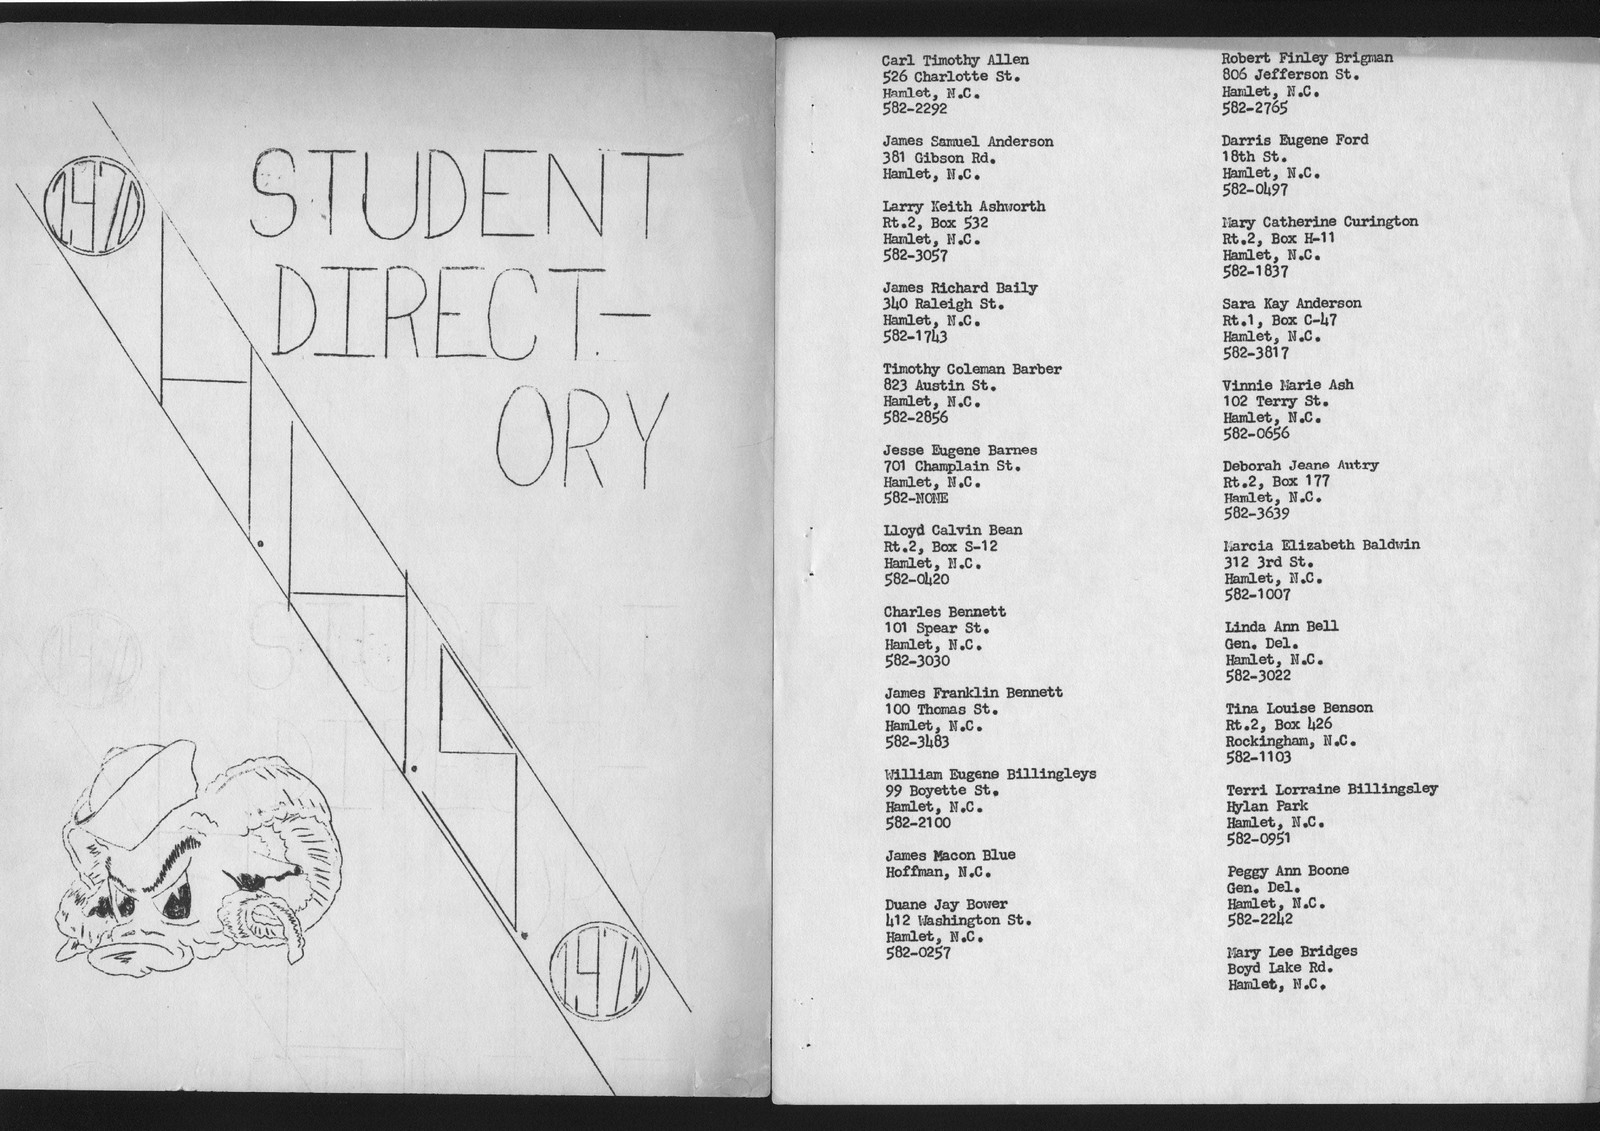 1970
STUDENT
DIRECT-
ORY
H.H.S.
1971
Carl Timothy Allen
526 Charlotte St.
Hamlet, N.C.
582-2292
James Samuel Anderson
381 Gibson Rd.
Hamlet, N.C.
Larry Keith Ashworth
Rt.2, Box 532
Hamlet, N.C.
582-3057
James Richard Baily
340 Raleigh St.
Hamlet, N.C.
582-1743
Timothy Coleman Barber
823 Austin St.
Hamlet, N.C.
582-2856
Jesse Eugene Barnes
701 Champlain St.
Hamlet, N.C.
582-NONE
Lloyd Calvin Bean
Rt.2, Box S-12
Hamlet, N.C.
582-0420
Charles Bennett
101 Spear St.
Hamlet, N.C.
582-3030
James Franklin Bennett
100 Thomas St.
Hamlet, N.C.
582-3483
William Eugene Billingleys
99 Boyette St.
Hamlet, N.C.
582-2100
James Macon Blue
Hoffman, N.C.
Duane Jay Bower
412 Washington St.
Hamlet, N.C.
582-0257
Robert Finley Brigman
806 Jefferson St.
Hamlet, N.C.
582-2765
Darris Eugene Ford
18th St.
Hamlet, N.C.
582-0497
Mary Catherine Curington
Rt.2, Box H-11
Hamlet, N.C.
582-1837
Sara Kay Anderson
Rt.1, Box C-47
Hamlet, N.C.
582-3817
Vinnie Marie Ash
102 Terry St.
Hamlet, N.C.
582-0656
Deborah Jeane Autry
Rt.2, Box 177
Hamlet, N.C.
582-3639
Marcia Elizabeth Baldwin
312 3rd St.
Hamlet, N.C.
582-1007
Linda Ann Bell
Gen. Del.
Hamlet, N.C.
582-3022
Tina Louise Benson
Rt.2, Box 426
Rockingham, N.C.
582-1103
Terri Lorraine Billingsley
Hylan Park
Hamlet, N.C.
582-0951
Peggy Ann Boone
Gen. Del.
Hamlet, N.C.
582-2242
Mary Lee Bridges
Boyd Lake Rd.
Hamlet, N.C.